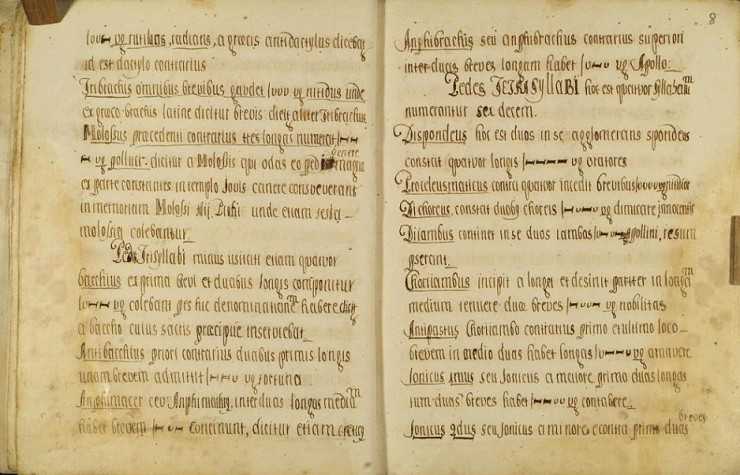 rutilans, radians, a græcis antidactylus dicebat
id est dactylo contrarius
Tribrachus omnibus brevibus gaudet ʋʋʋ vg nitidus unde
ex græco brachus latine dicitur brevis. dicit aliter Tribrachus
Molossus præcedenti contrarius tres longas numerat
vg dicitur a Molossis qui odas eo genere
ex parte constantes in templo Jovis canere consueverant
in memoriam Molossi unde etiam festa
molossia colebantur
Pedes Trisyllabi minus usitati etiam quatuor
bacchius ex prima brevi et duabus longis componitur
ʋ-- vg colebant hic denominationem habere
a baccho cuius sacris præcipue inserviebat
Antibacchius priori contrarius duabus primis longis
unam brevem admittit --ʋ vg
Amphimacer ceu Amphimachus, inter duas longas mediam
habet brevem -ʋ- Concinunt, dicitur etiam
8
Amphibrachus seu amphibrachus contrarius superiori
inter duas breves longam habet ʋ-ʋ vg Apollo
Pedes TETRISYLLABI hoc est quatuor syllabarum
numerantur sex decem.
Dispondeus hoc est duos in se agglomerans spondeos
constat quatuor longis ---- vg oratores
Proceleusmaticus contra quatuor incedit brevibus ʋʋʋʋ vg
Dichoreus, constat duobus choreis -ʋ-ʋ vg dimicare,
Diiambus continet in se duos iambos
Choriambus incipit a longa et desinit pariter in longam
medium tenuere duæ breves -ʋʋ- vg nobilitas
Antipastus Choriambo contrarius primo et ultimo loco
brevem in medio duas habet longas ʋ--ʋ vg
Jonicus seu Jonicus a maiore, primo duas longas
tum duas breves habet --ʋʋ vg
Jonicus 2dus seu Jonicus a minore e contra primo duas
breves